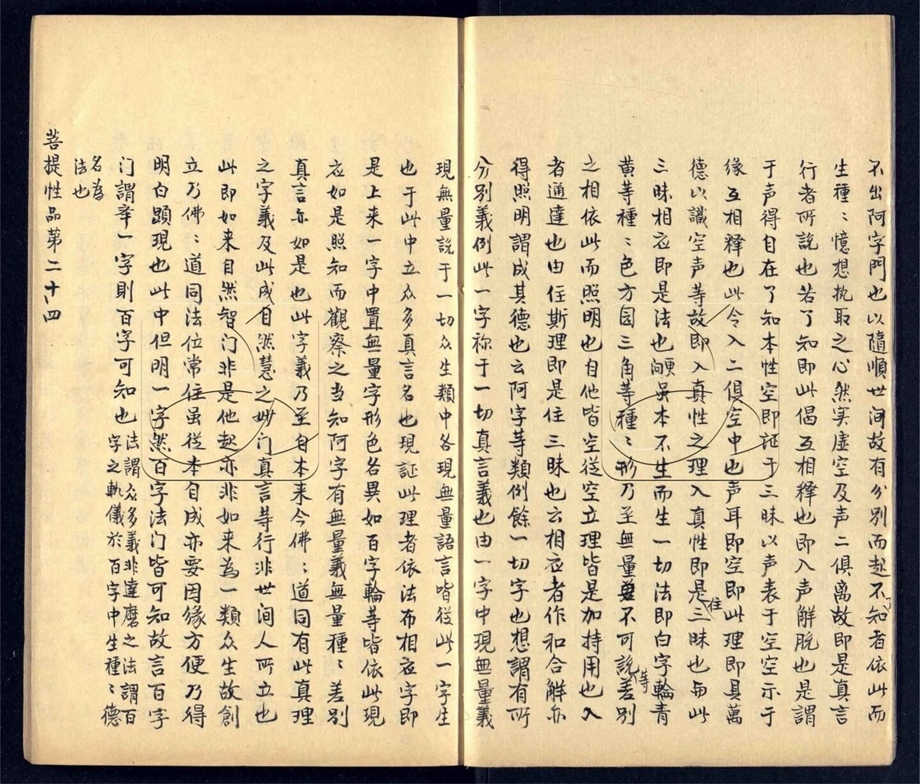 不出阿字門也以隨順世间故有分別而起不知者依此而
生種〻憶想执取之心然実虛空及声二俱离故即是真言
行者所说也若了知即此偈互相釋也即入声解脱也是謂
于声得自在了知本性空即証于三昧以声表于空空示于
缘互相釋也此令入二俱空中也声耳即空即此理即具萬
德以識空声等故即入真性之理入真性即是住三昧也与此
三昧相应即是法也虽本不生而生一切法即白字輪青
黄等種〻色方园三角等種〻形乃至無量不可説等差别
之相依此而照明也自他皆空从空立理皆是加持用也入
者通達也由住斯理即是住三昧也云相应者作和合解亦
得照明謂成其德也云阿字等類例餘一切字也想謂有所
分别義例此一字称于一切真言義也由一字中現無量義
現無量說于一切众生類中各現無量語言皆從此一字生
也于此中立众多真言名也現証此理者依法布相应字即
是上来一字中置無量字形色各異如百字輪等皆依此現
应如是照知而觀察之当知阿字有無量義無量種〻差别
真言亦如是也此字義乃至自本来今佛〻道同有此真理
之字義及此成自然慧之妙门真言等行非世间人所立也
此即如来自然智门非是他起亦非如来為一類众生故創
立乃佛〻道同法位常住虽從本自成亦要因缘方便乃得
明白顕現也此中但明一字然百字法门皆可知故言百字
门謂举一字則百字可知也法謂众多義非達磨之法謂百
字之軌儀於百字中生種〻德
名為
法也
菩提性品第二十四